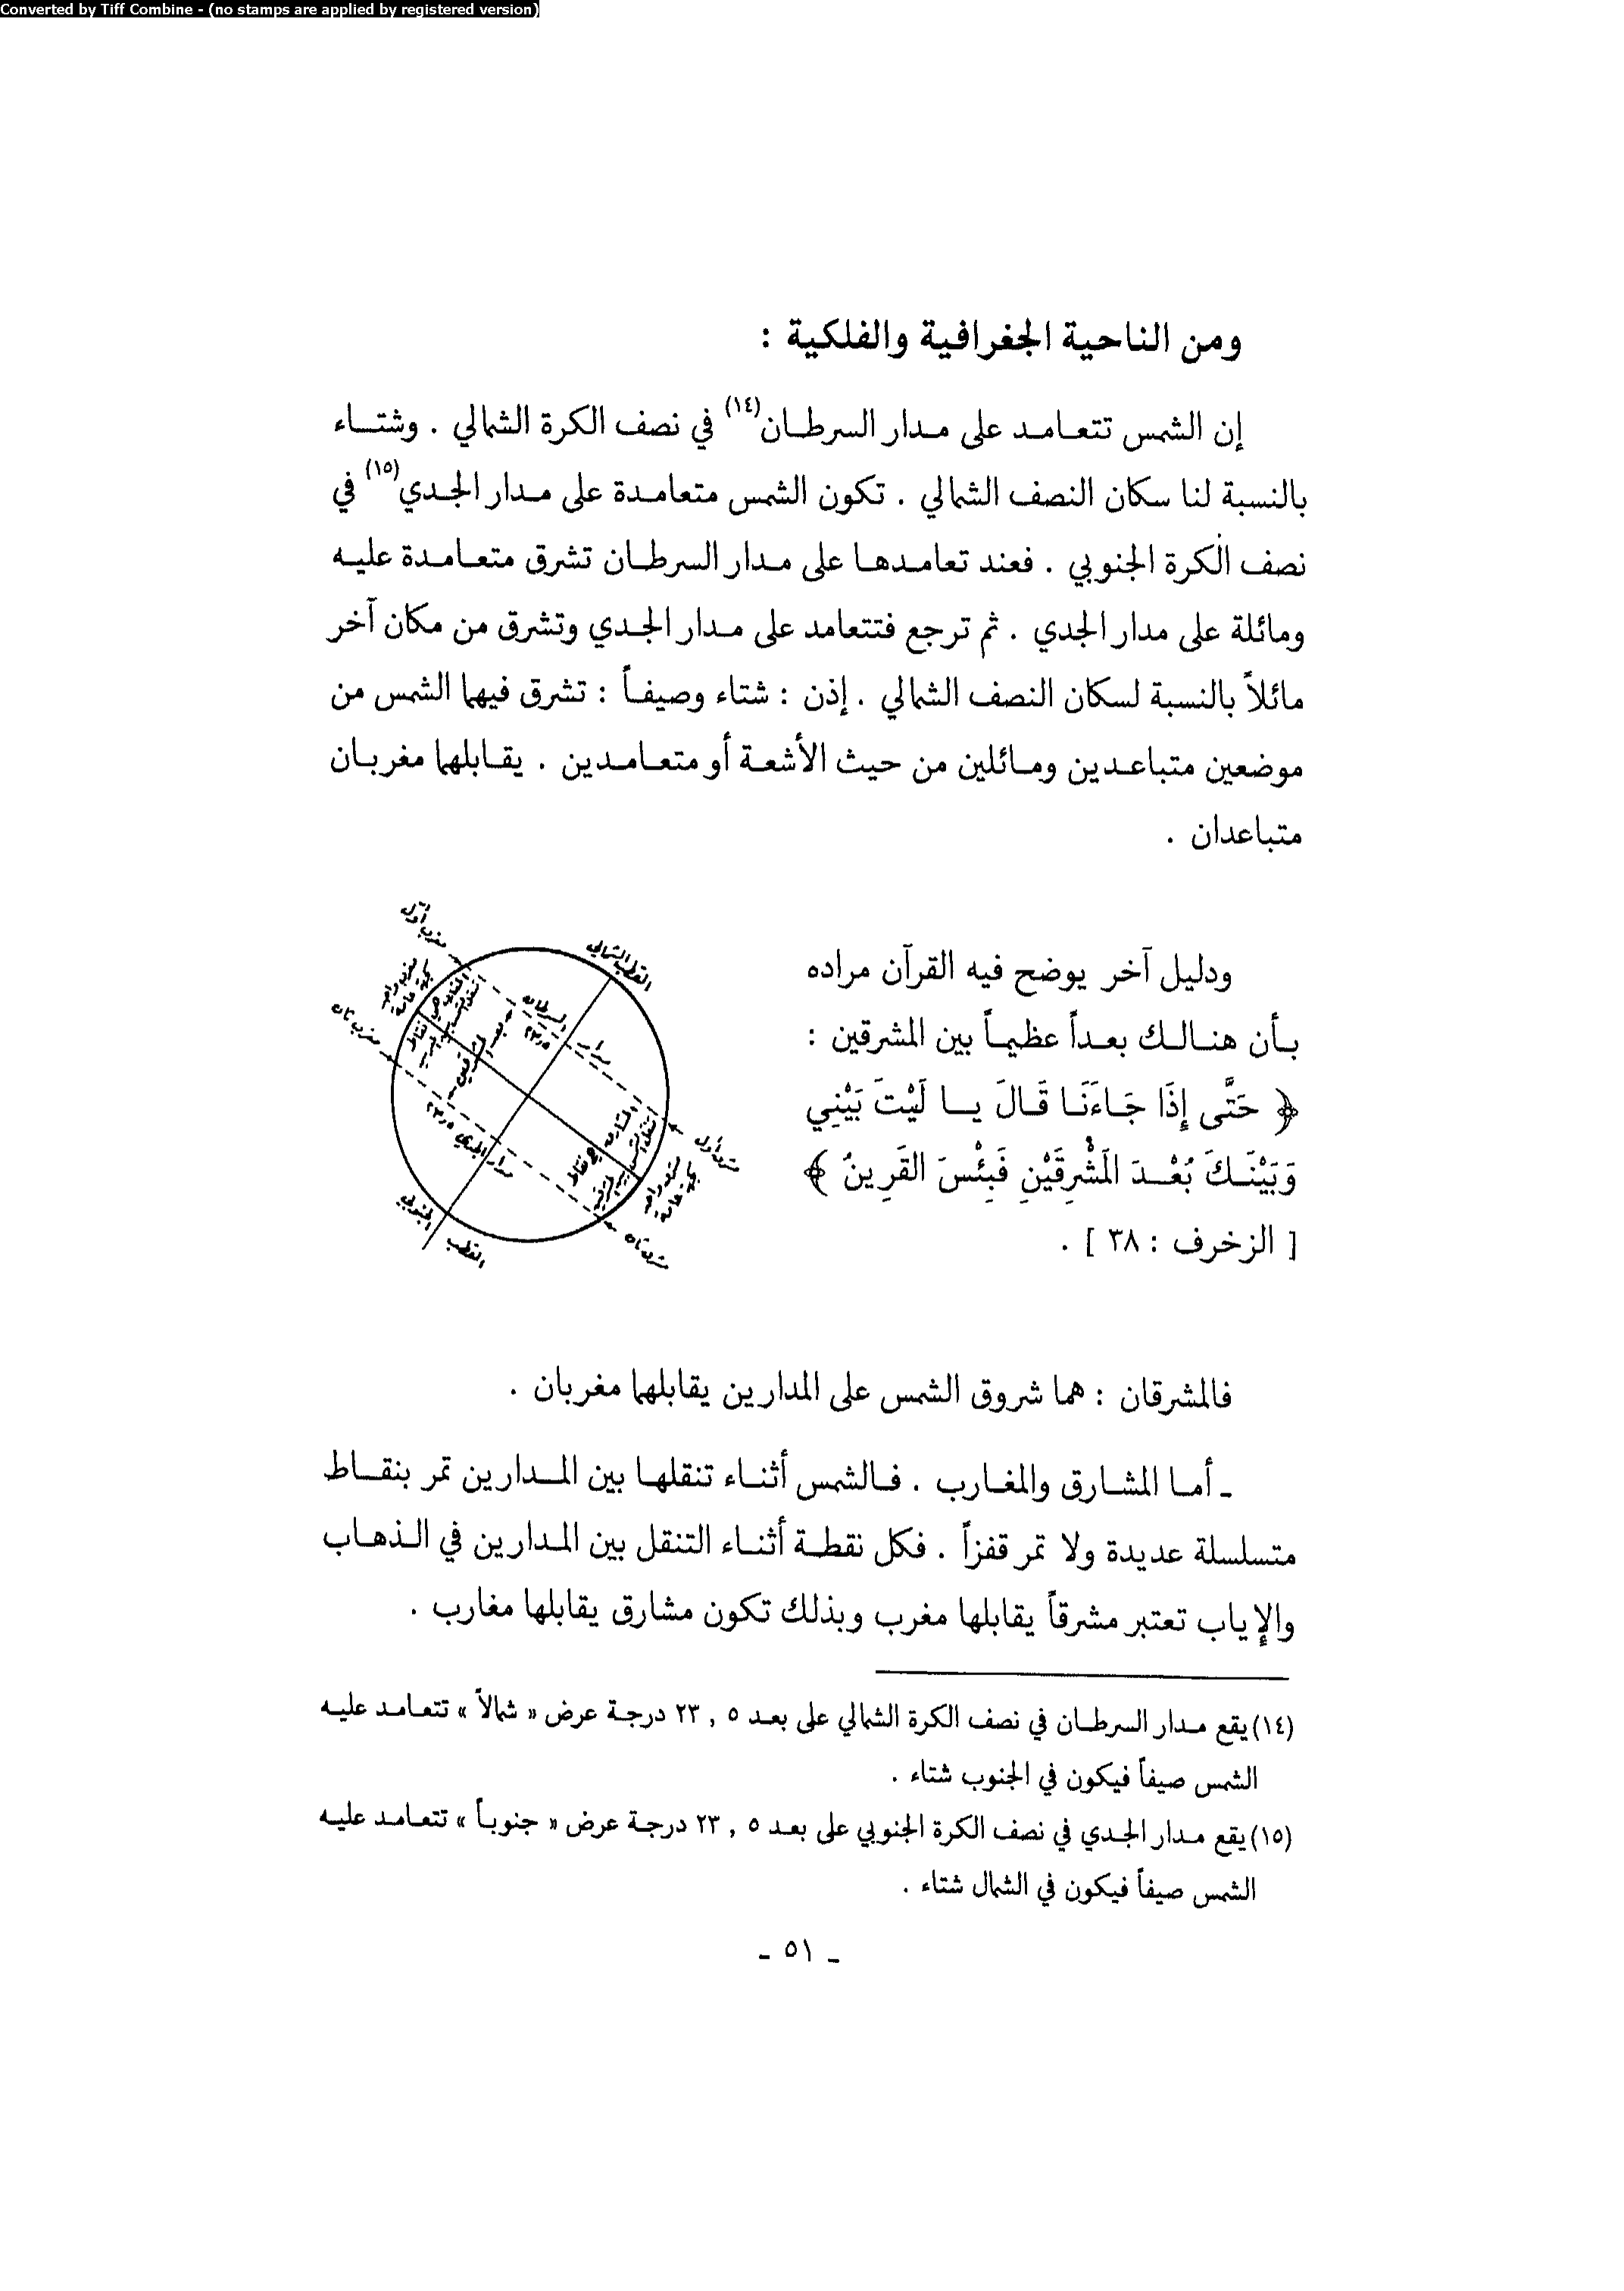 Converted by Tiff Combine - (no stamps are applied by registered version)
ومن الناحية الجغرافية والفلكية :
إن الشمس تتعامد على مدار السرطان(١٤) في نصف الكرة الشمالي . وشتاء
بالنسبة لنا سكان النصف الشمالي . تكون الشمس متعامدة على مدار الجدي(١٥) في
نصف الكرة الجنوبي . فعند تعامدها على مدار السرطان تشرق متعامدة عليه
ومائلة على مدار الجدي . ثم ترجع فتتعامد على مدار الجدي وتشرق من مكان آخر
مائلاً بالنسبة لسكان النصف الشمالي . إذن : شتاء وصيفاً : تشرق فيها الشمس من
موضعين متباعدين ومائلين من حيث الأشعة أو متعامدين . يقابلهما مغربان
متباعدان .
ودليل آخر يوضح فيه القرآن مراده
بأن هنالك بعداً عظيماً بين المشرقين :
﴿ حَتَّى إِذَا جَاءَنَا قَالَ يا لَيْتَ بَيْنِي
وَبَيْنَكَ بُعْدَ المَشْرِقَيْنِ فَبِئْسَ القَرِينُ ﴾
[ الزخرف : ٣٨ ] .
القطب الشمالي
مغرب أول
مغرب ثان
مدار السرطان ٢٣,٥
مدار الجدي ٢٣,٥
مشرق أول
مشرق ثان
القطب الجنوبي
فالمشرقان : هما شروق الشمس على المدارين يقابلهما مغربان .
ـ أما المشارق والمغارب . فالشمس أثناء تنقلها بين المدارين تمر بنقاط
متسلسلة عديدة ولا تمر قفزاً . فكل نقطة أثناء التنقل بين المدارين في الذهاب
والإياب تعتبر مشرقاً يقابلها مغرب وبذلك تكون مشارق يقابلها مغارب .
(١٤) يقع مدار السرطان في نصف الكرة الشمالي على بعد ٢٣,٥ درجة عرض « شمالاً » تتعامد عليه
الشمس صيفاً فيكون في الجنوب شتاء .
(١٥) يقع مدار الجدي في نصف الكرة الجنوبي على بعد ٢٣,٥ درجة عرض « جنوباً » تتعامد عليه
الشمس صيفاً فيكون في الشمال شتاء .
ـ ٥١ ـ